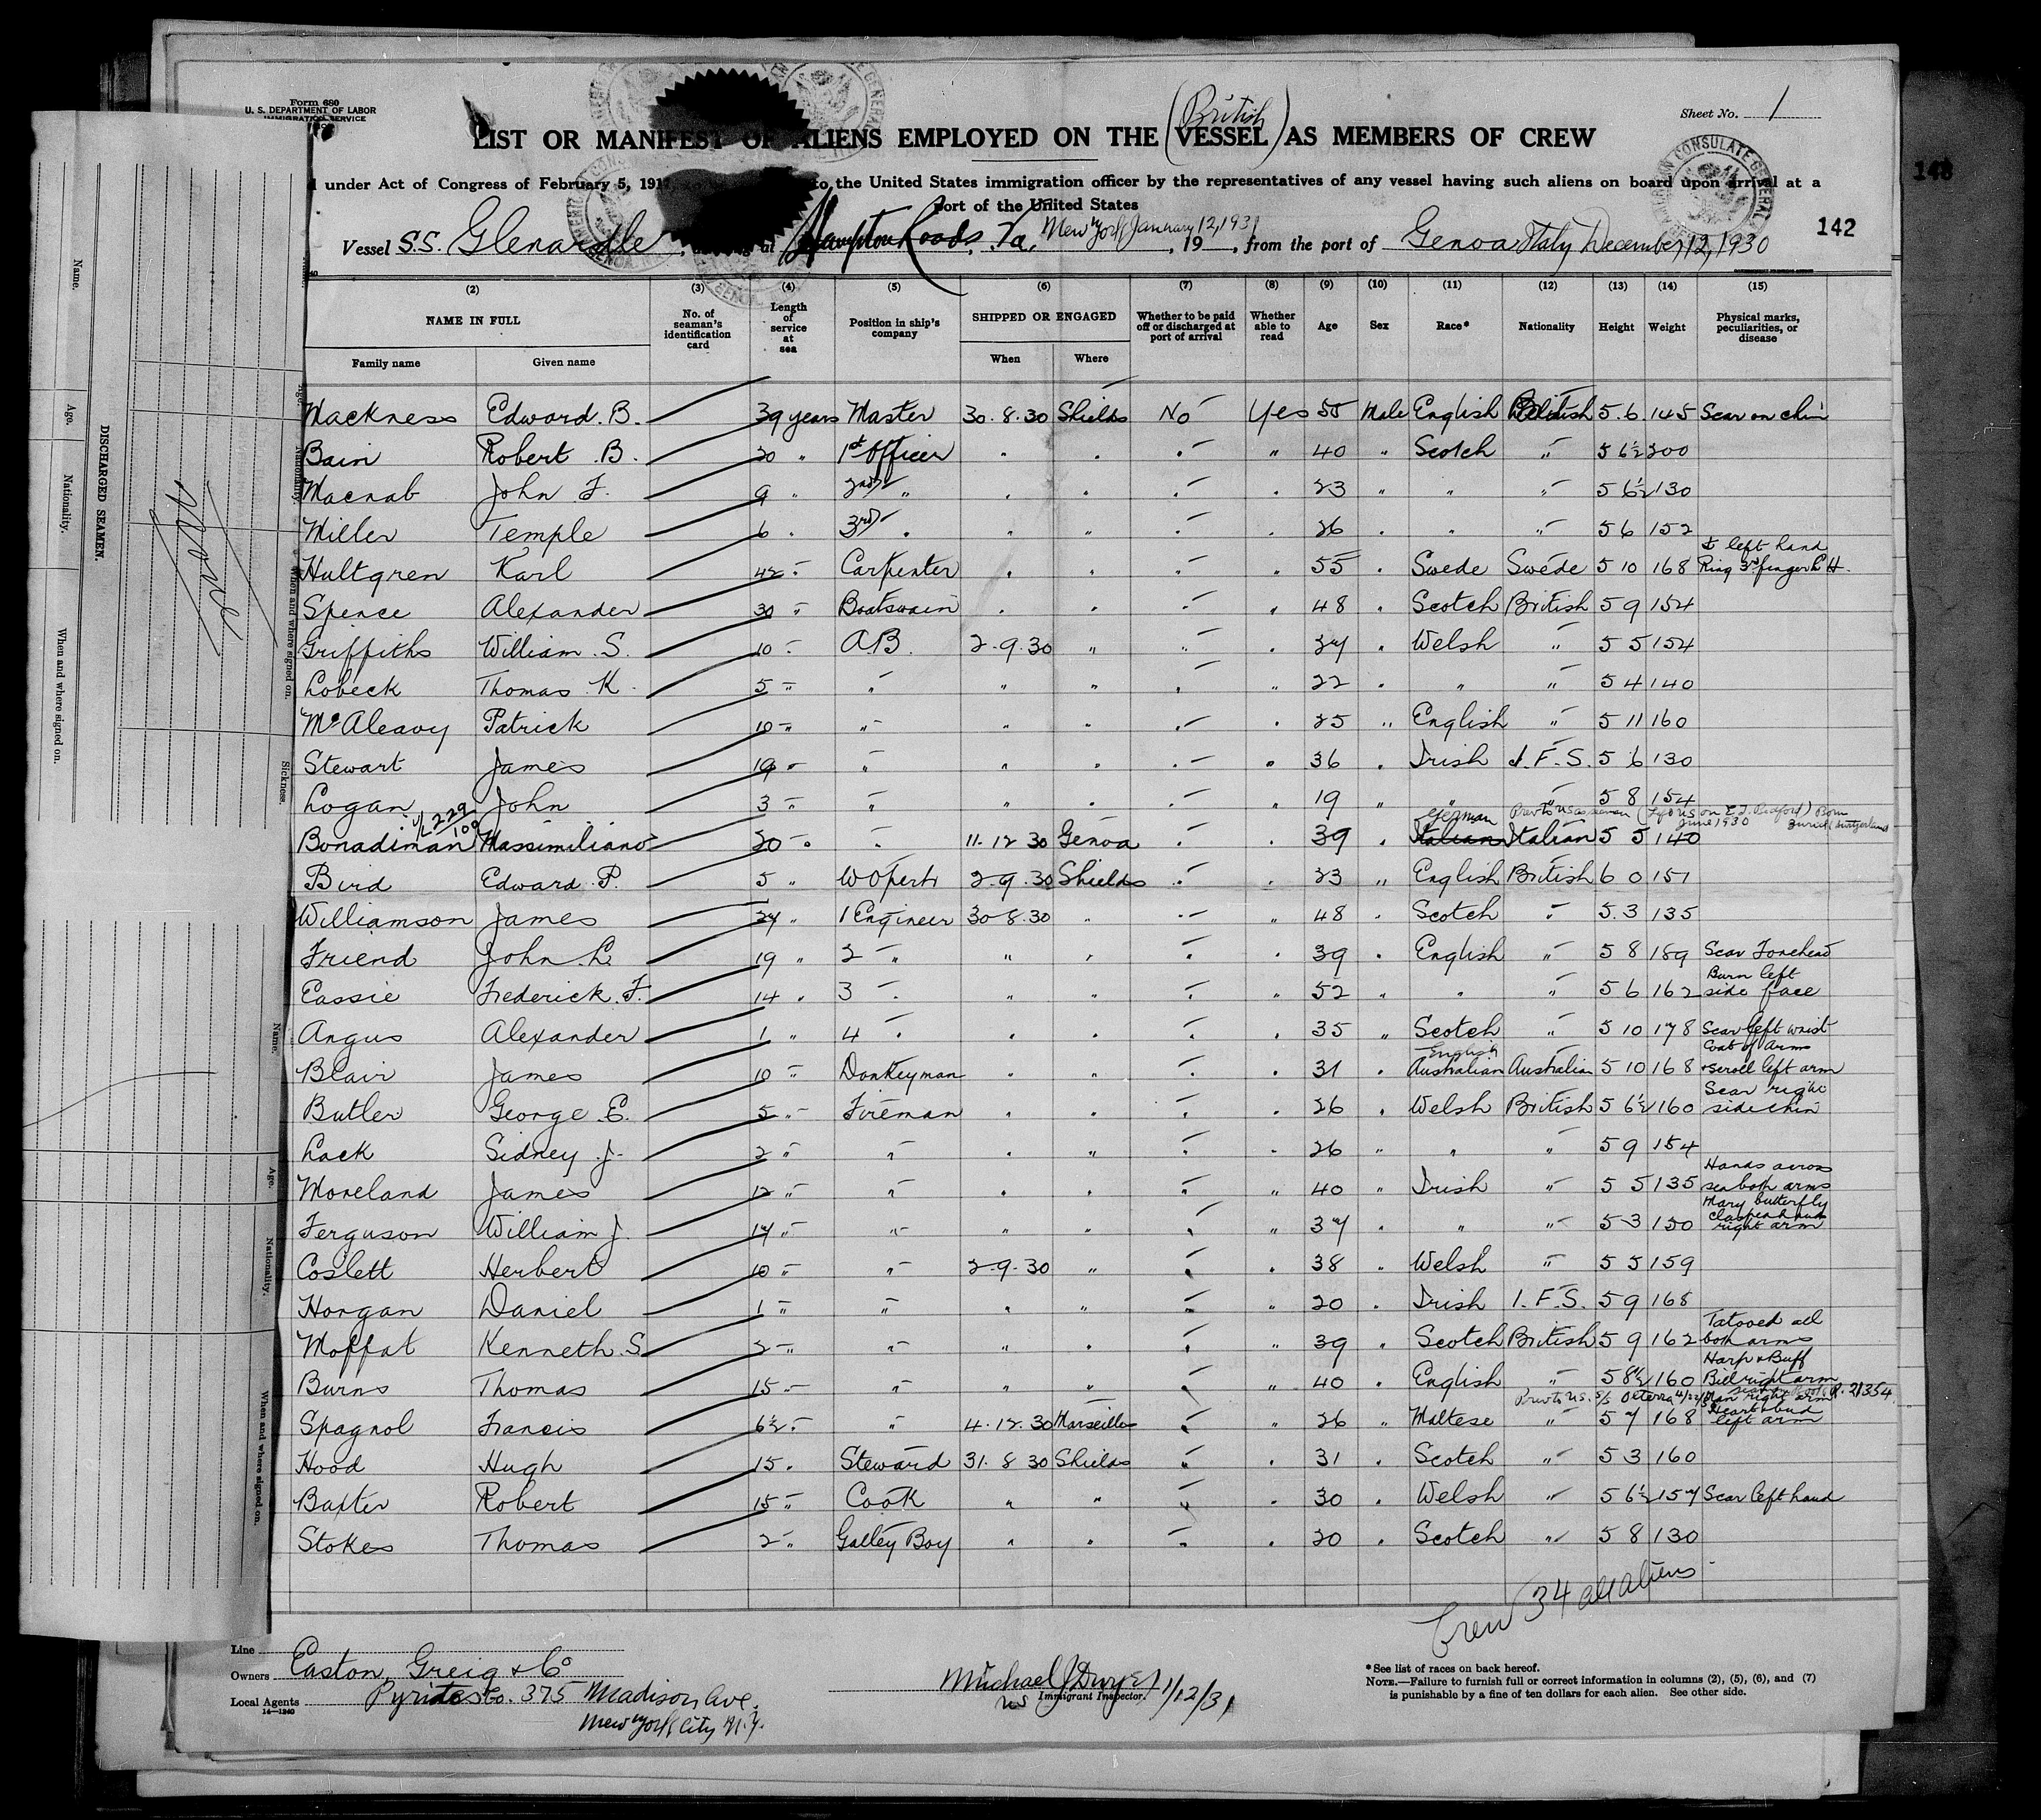 Form 680
U. S. DEPARTMENT OF LABOR
IMMIGRATION SERVICE
Sheet No. 1
(British)
LIST OR MANIFEST OF ALIENS EMPLOYED ON THE VESSEL AS MEMBERS OF CREW
under Act of Congress of February 5, 1917, to the United States immigration officer by the representatives of any vessel having such aliens on board upon arrival at a
port of the United States
142
Vessel S.S. Glenardle, at Hampton Roads, Va, New York January 12, 1931, 19, from the port of Genoa Italy December 12, 1930
(2) (3) (4) (5) (6) (7) (8) (9) (10) (11) (12) (13) (14) (15)
NAME IN FULL No. of seaman's identification card Length of service at sea Position in ship's company SHIPPED OR ENGAGED Whether to be paid off or discharged at port of arrival Whether able to read Age Sex Race* Nationality Height Weight Physical marks, peculiarities, or disease
Family name Given name When Where
Mackness Edward. B. 39 years Master 30. 8. 30 Shields No Yes 55 Male English British 5. 6. 145 Scar on chin
Bain Robert B. 20 " 1st Officer " " " " 40 " Scotch " 5 6½ 200
Macnab John F. 9 " 2nd " " " " " 23 " " " 5 6½ 130
Miller Temple 6 " 3rd " " " " " 26 " " " 5 6 152
Hultgren Karl 42 " Carpenter " " " " 55 " Swede Swede 5 10 168 left hand Ring 3rd finger L H.
Spence Alexander 30 " Boatswain " " " " 48 " Scotch British 5 9 154
Griffiths William S. 10 " A.B. 2. 9. 30 " " " 27 " Welsh " 5 5 154
Lobeck Thomas K. 5 " " " " " " 22 " " " 5 4 140
McAleavy Patrick 10 " " " " " " 25 " English " 5 11 160
Stewart James 19 " " " " " " 36 " Irish I. F. S. 5 6 130
Logan John 3 " " " " " " 19 " " " 5 8 154
German June 1930 Born Zurich Switzerland
Bonadiman Massimiliano 20 " " 11. 12 30 Genoa " " 39 " Italian Italian 5 5 140
Bird Edward P. 5 " W Opert. 2. 9. 30 Shields " " 23 " English British 6 0 151
Williamson James 27 " 1 Engineer 30 8. 30 " " " 48 " Scotch " 5. 3 135
Friend John L. 19 " 2 " " " " " 39 " English " 5 8 189 Scar Forehead
Cassie Frederick. F. 14 " 3 " " " " " 52 " " " 5 6 162 Burn left side face
Angus Alexander 1 " 4 " " " " " 35 " Scotch " 5 10 178 Scar left wrist
Blair James 10 " Donkeyman " " " " 31 " English Australian Australian 5 10 168 Coat of Arms + scroll left arm
Butler George. E. 5 " Fireman " " " " 26 " Welsh British 5 6½ 160 Scar right side chin
Lack Sidney J. 2 " " " " " " 26 " " " 5 9 154
Moreland James 12 " " " " " " 40 " Irish " 5 5 135 Hands across sea both arms
Ferguson William J. 17 " " " " " " 37 " " " 5 3 150 Mary butterfly clasped hands right arm
Coslett Herbert 10 " " 2. 9. 30 " " " 38 " Welsh " 5 5 159
Horgan Daniel 1 " " " " " " 20 " Irish I. F. S. 5 9 168
Moffat Kenneth. S. 2 " " " " " " 39 " Scotch British 5 9 162 Tatooed all both arms
Burns Thomas 15 " " " " " " 40 " English " 5 8½ 160 Harp & Buff Bill right arm
Spagnol Francis 6½ " " 4. 12. 30 Marseilles " " 26 " Maltese " 5 7 168 Heart & bud left arm
Hood Hugh 15 " Steward 31. 8 30 Shields " " 31 " Scotch " 5 3 160
Baxter Robert 15 " Cook " " " " 30 " Welsh " 5 6½ 157 Scar left hand
Stokes Thomas 2 " Galley Boy " " " " 20 " Scotch " 5 8 130
Crew 34 all aliens
Line
Owners Easton, Greig & Co
Local Agents Pyrites Co. 375 Madison Ave.
New York City N.Y.
14—1240
Michael J Dwyer 1/12/31
US Immigrant Inspector.
*See list of races on back hereof.
NOTE.—Failure to furnish full or correct information in columns (2), (5), (6), and (7)
is punishable by a fine of ten dollars for each alien. See other side.
DISCHARGED SEAMEN.
Name. Age. Nationality. When and where signed on.
Sickness.
Name. Age. Nationality. When and where signed on.